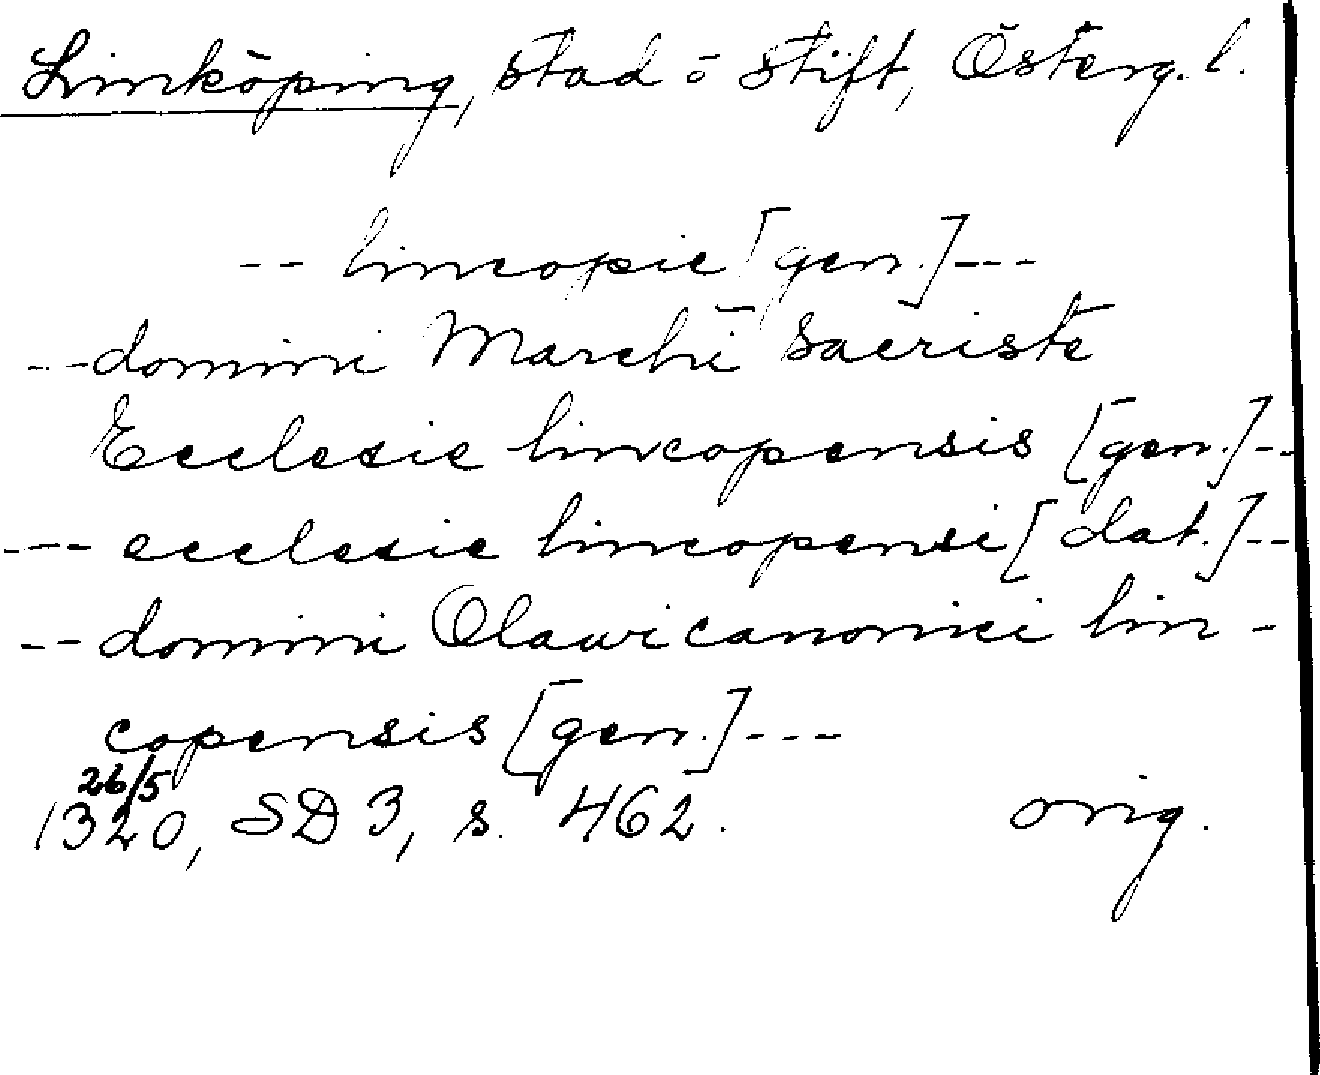 Linköping, stad o stift, Österg. l.
-- lincopie [gen.] ---
-- domini Marchi sacriste
Ecclesie lincopensis [gen.] --
--- ecclesie lincopensi [dat.] --
-- domini Olaui canonici lin-
copensis [gen.] ---
26/5
1320, SD 3, s. 462. orig.